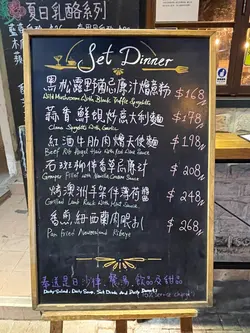 夏日乳酪系列
Set Dinner
黑松露野菌忌廉汁燴意粉 $168
Wild Mushroom With Black Truffle Spaghetti
蒜香鮮蜆炒意大利麵 $178
Clams Spaghetti With Garlic
紅酒牛肋肉燴天使麵 $198
Beef Rib Angel Hair With Red Wine Sauce
石斑柳伴香草忌廉汁 $208
Grouper Fillet with Vanilla Cream Sauce
烤澳洲羊架伴薄荷 $248
Grilled Lamb Rack With Mint Sauce
香煎紐西蘭肉眼扒 $268
Pan Fried Newzealand Ribeye
奉送是日沙律、餐湯、飲品及甜品
Daily Salad, Daily Soup, Set Drink And Daily Dessert
10% Service Charge